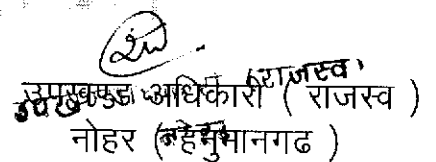 उपखण्ड अधिकारी ( राजस्व )
नोहर (हनुमानगढ )